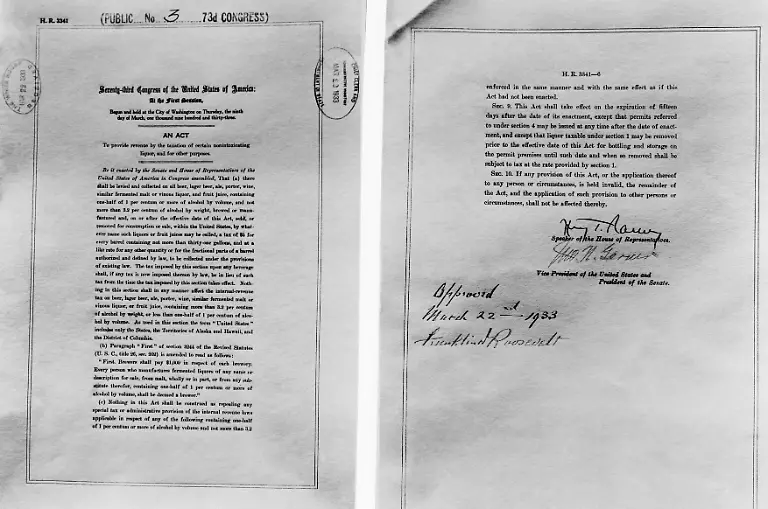 H. R. 3341
(PUBLIC No 3 73d CONGRESS)
Seventy-third Congress of the United States of America;
At the First Session,
Begun and held at the City of Washington on Thursday, the ninth
day of March, one thousand nine hundred and thirty-three.
AN ACT
To provide revenue by the taxation of certain nonintoxicating
liquor, and for other purposes.
Be it enacted by the Senate and House of Representatives of the
United States of America in Congress assembled, That (a) there
shall be levied and collected on all beer, lager beer, ale, porter, wine,
similar fermented malt or vinous liquor, and fruit juice, containing
one-half of 1 per centum or more of alcohol by volume, and not
more than 3.2 per centum of alcohol by weight, brewed or manu-
factured and, on or after the effective date of this Act, sold, or
removed for consumption or sale, within the United States, by what-
ever name such liquors or fruit juices may be called, a tax of $5 for
every barrel containing not more than thirty-one gallons, and at a
like rate for any other quantity or for the fractional parts of a barrel
authorized and defined by law, to be collected under the provisions
of existing law. The tax imposed by this section upon any beverage
shall, if any tax is now imposed thereon by law, be in lieu of such
tax from the time the tax imposed by this section takes effect. Noth-
ing in this section shall in any manner affect the internal-revenue
tax on beer, lager beer, ale, porter, wine, similar fermented malt or
vinous liquor, or fruit juice, containing more than 3.2 per centum
of alcohol by weight, or less than one-half of 1 per centum of alco-
hol by volume. As used in this section the term "United States"
includes only the States, the Territories of Alaska and Hawaii, and the
District of Columbia.
(b) Paragraph "First" of section 3244 of the Revised Statutes
(U. S. C., title 26, sec. 202) is amended to read as follows:
"First. Brewers shall pay $1,000 in respect of each brewery.
Every person who manufactures fermented liquors of any name or
description for sale, from malt, wholly or in part, or from any sub-
stitute therefor, containing one-half of 1 per centum or more of
alcohol by volume, shall be deemed a brewer."
(c) Nothing in this Act shall be construed as repealing any
special tax or administrative provision of the internal revenue laws
applicable in respect of any of the following containing one-half
of 1 per centum or more of alcohol by volume and not more than 3.2
H. R. 3341—6
enforced in the same manner and with the same effect as if this
Act had not been enacted.
Sec. 9. This Act shall take effect on the expiration of fifteen
days after the date of its enactment, except that permits referred
to under section 4 may be issued at any time after the date of enact-
ment, and except that liquor taxable under section 1 may be removed
prior to the effective date of this Act for bottling and storage on
the permit premises until such date and when so removed shall be
subject to tax at the rate provided by section 1.
Sec. 10. If any provision of this Act, or the application thereof
to any person or circumstances, is held invalid, the remainder of
the Act, and the application of such provision to other persons or
circumstances, shall not be affected thereby.
Henry T. Rainey
Speaker of the House of Representatives.
Jno. N. Garner
Vice President of the United States and
President of the Senate.
Approved
March 22nd—1933
Franklin D Roosevelt